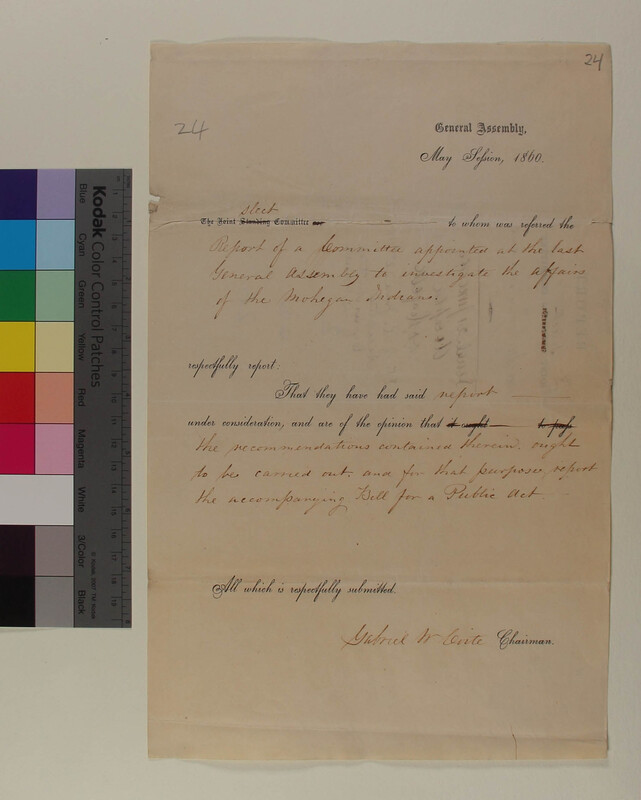 24
24
General Assembly,
May Session, 1860.
slect
The Joint Standing Committee on to whom was referred the
Report of a Committee appointed at the last
General Assembly to investigate the affairs
of the Mohegan Indians.
respectfully report:
That they have had said report
under consideration, and are of the opinion that it ought to pass
the recommendations contained therein, ought
to be carried out, and for that purpose, report
the accompanying Bill for a Public Act
All which is respectfully submitted.
Gabriel W Coite Chairman.
Kodak
Color Control Patches
Blue
Cyan
Green
Yellow
Red
Magenta
White
3/Color
Black